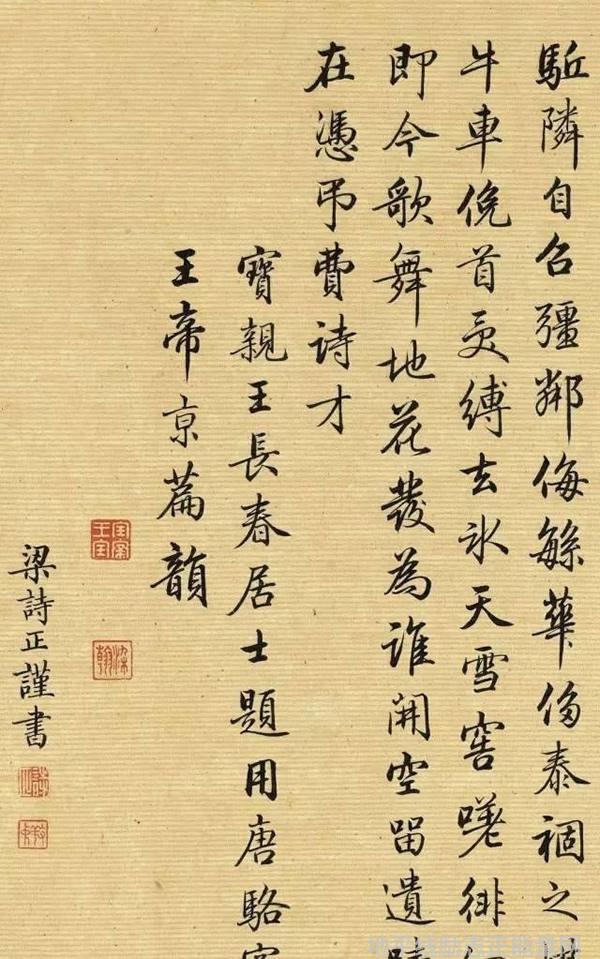 駈隣自召彊鄰侮緐華侈泰禍之
牛車俛首受縛去氷天雪窖嘆徘
即今歌舞地花發為誰開空留遺
在憑弔費詩才
寶親王長春居士題用唐駱賓
王帝京篇韻
寶親王寶
梁詩正謹書